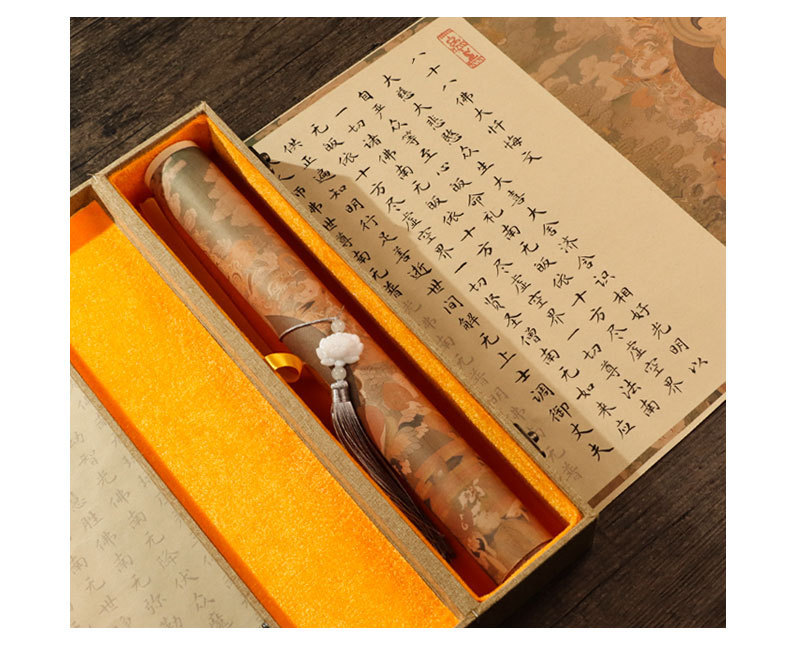 八十八佛大忏悔文
大慈大悲愍众生大喜大舍济含识相好光明以
自严众等至心皈命礼南无皈依十方尽虚空界
一切诸佛南无皈依十方尽虚空界一切尊法南
无皈依十方尽虚空界一切贤圣僧南无如来应
供正遍知明行足善逝世间解无上士调御丈夫
人师佛世尊南无普
佛南无降伏众
智慧胜佛南无弥勒